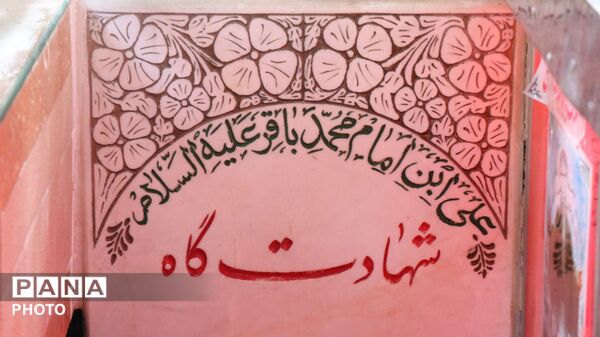 علی ابن امام محمد باقر علیه السلام
شهادت گاه
PANA
PHOTO